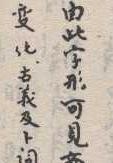 由此字形可見
變化、古義及卜詞